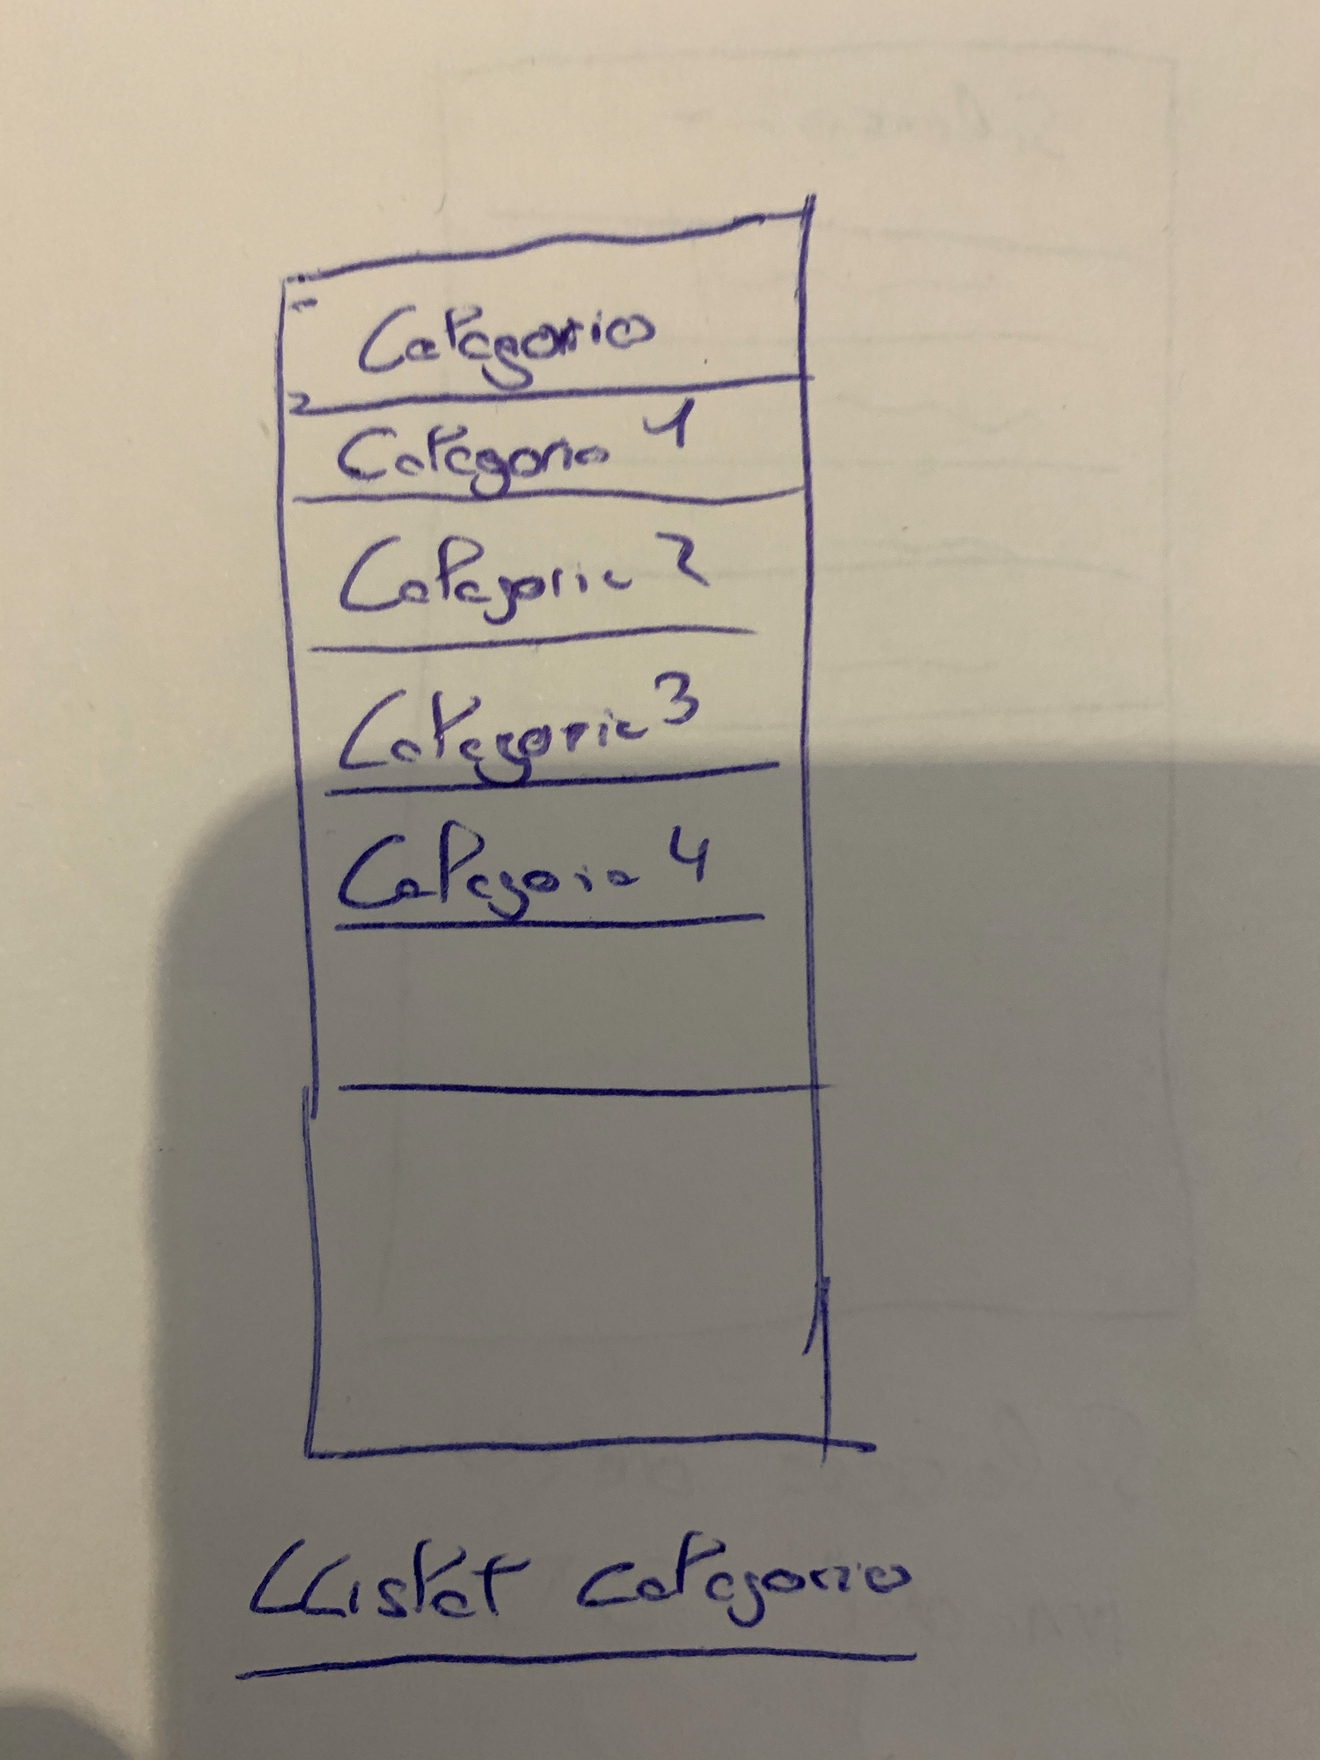 Categoria
Categoria 1
Categoria 2
Categoria 3
Categoria 4
Llistat categoria